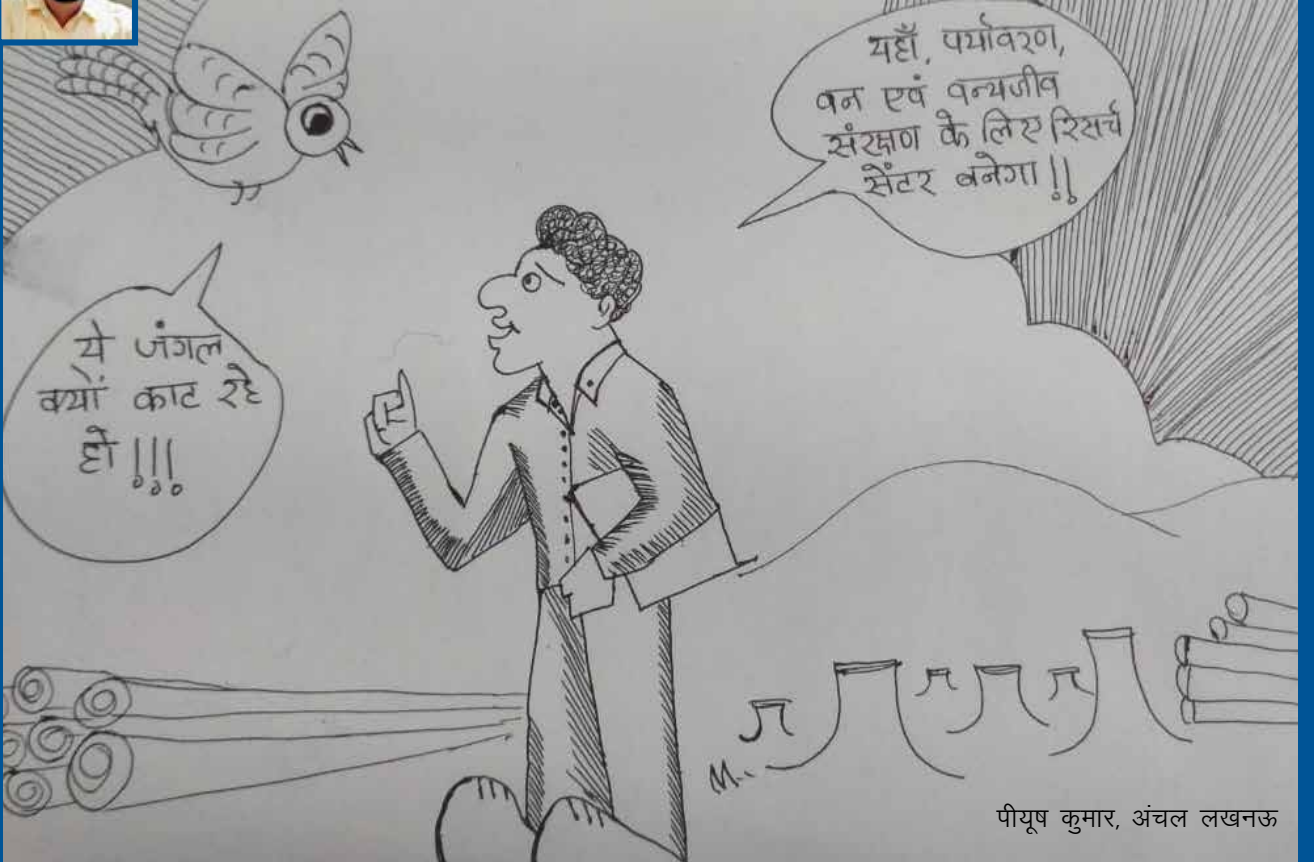 ये जंगल
क्यों काट रहे
हो!!!
यहाँ, पर्यावरण,
वन एवं वन्यजीव
संरक्षण के लिए रिसर्च
सेंटर बनेगा!!
पीयूष कुमार, अंचल लखनऊ